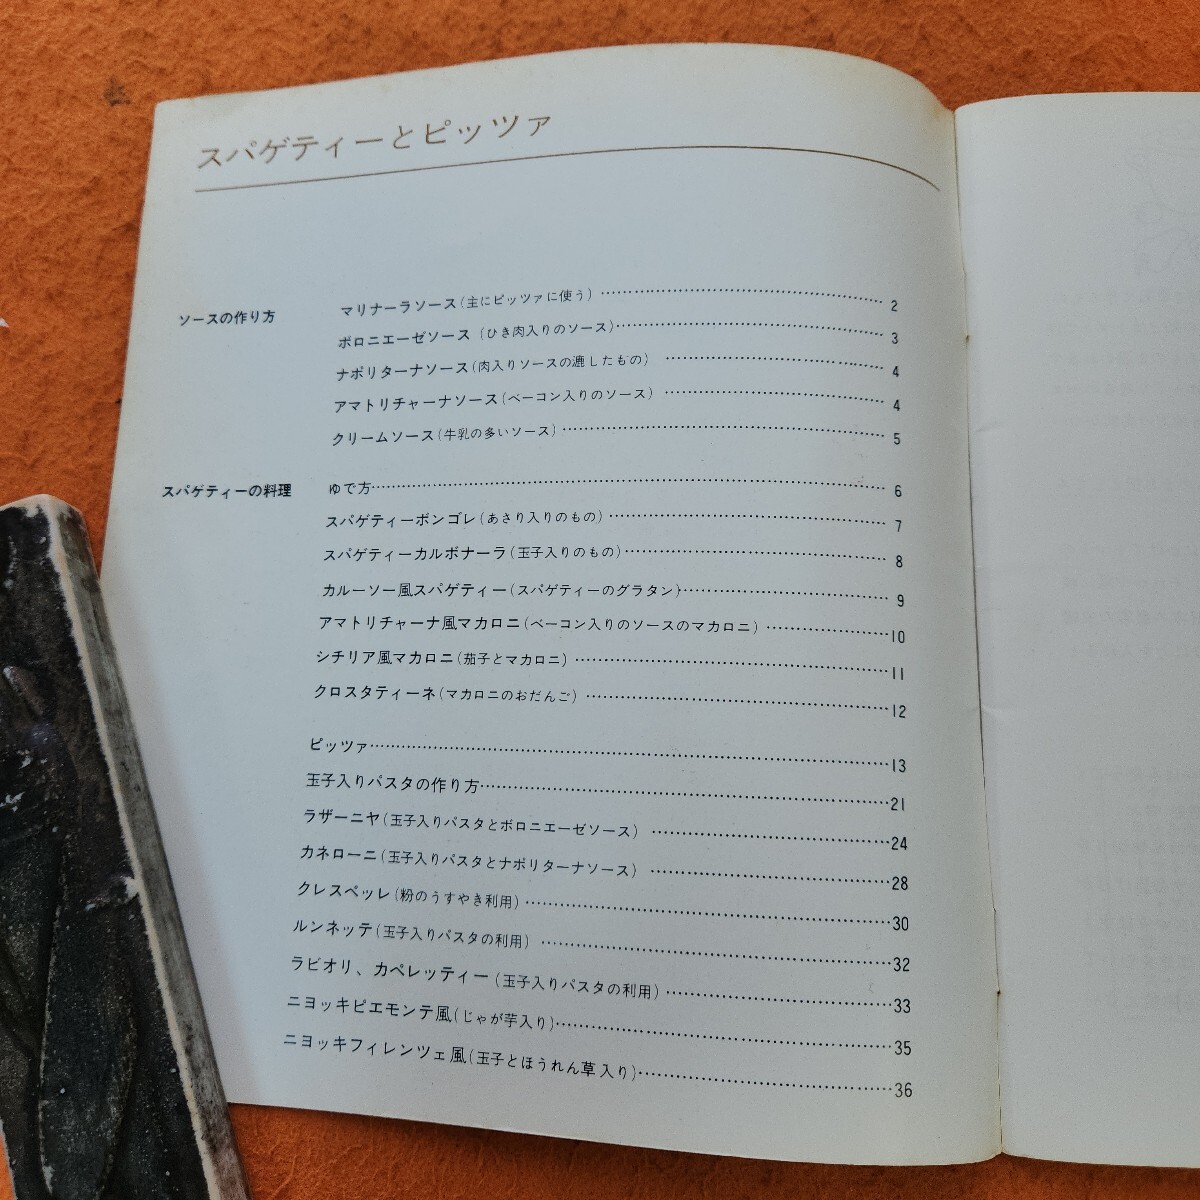 スパゲティーとピッツァ
ソースの作り方 マリナーラソース(主にピッツァに使う) 2
ボロニエーゼソース (ひき肉入りのソース) 3
ナポリターナソース(肉入りソースの漉したもの) 4
アマトリチャーナソース(ベーコン入りのソース) 4
クリームソース(牛乳の多いソース) 5
スパゲティーの料理 ゆで方 6
スパゲティーボンゴレ(あさり入りのもの) 7
スパゲティーカルボナーラ(玉子入りのもの) 8
カルーソー風スパゲティー(スパゲティーのグラタン) 9
アマトリチャーナ風マカロニ(ベーコン入りのソースのマカロニ) 10
シチリア風マカロニ(茄子とマカロニ) 11
クロスタティーネ(マカロニのおだんご) 12
ピッツァ 13
玉子入りパスタの作り方 21
ラザーニヤ(玉子入りパスタとボロニエーゼソース) 24
カネローニ(玉子入りパスタとナポリターナソース) 28
クレスペッレ(粉のうすやき利用) 30
ルンネッテ(玉子入りパスタの利用) 32
ラビオリ、カペレッティー(玉子入りパスタの利用) 33
ニヨッキピエモンテ風(じゃが芋入り) 35
ニヨッキフィレンツェ風(玉子とほうれん草入り) 36